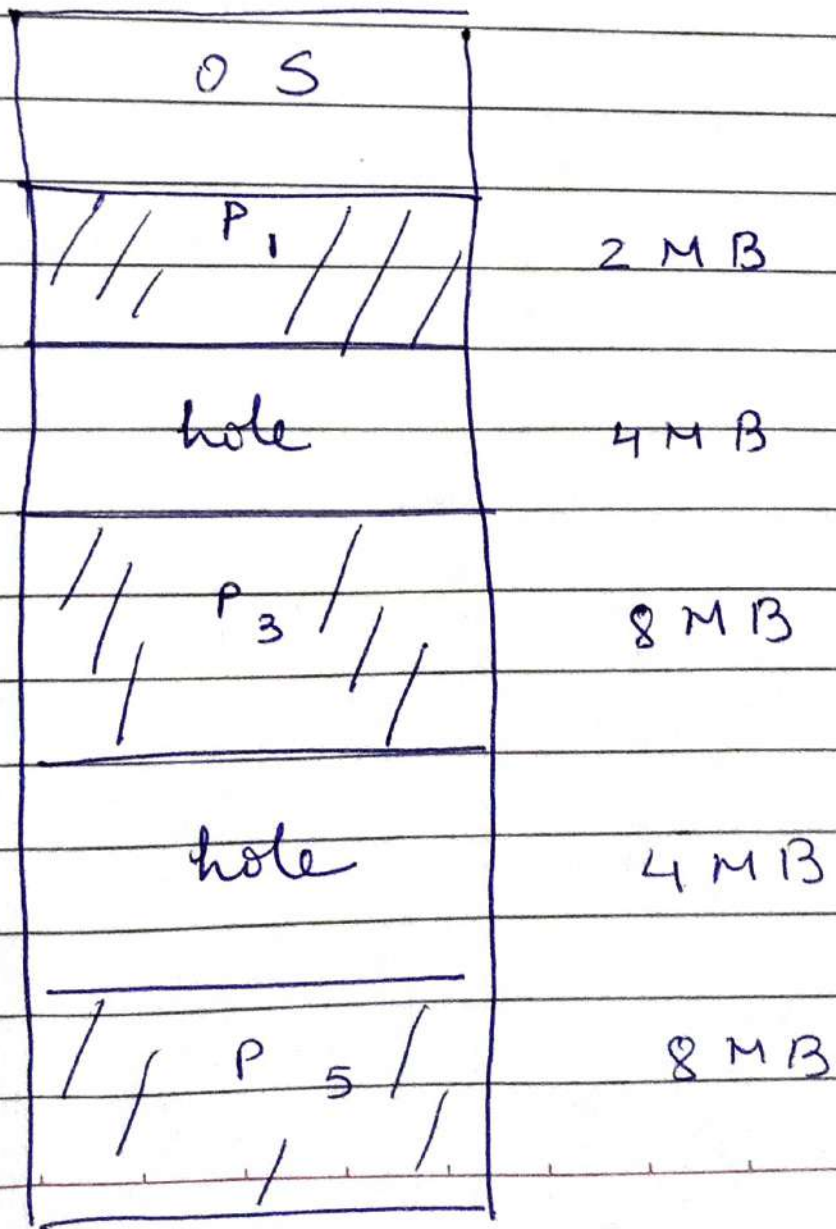 OS
P1 2 MB
hole 4 MB
P3 8 MB
hole 4 MB
P5 8 MB